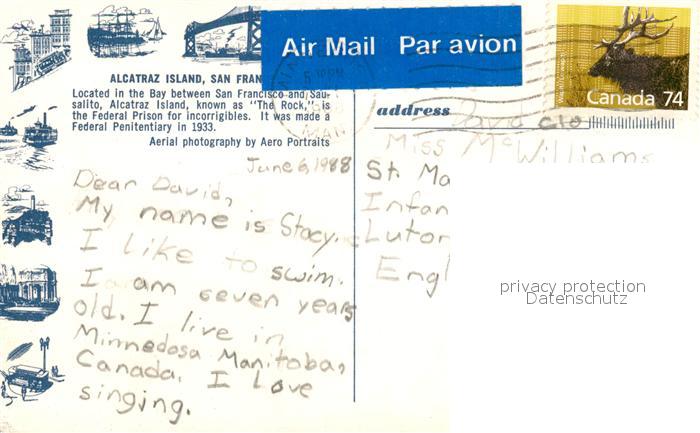 Air Mail Par avion
Canada 74
ALCATRAZ ISLAND, SAN FRAN
Located in the Bay between San Francisco and Sau-
salito, Alcatraz Island, known as "The Rock," is
the Federal Prison for incorrigibles. It was made a
Federal Penitentiary in 1933.
Aerial photography by Aero Portraits
address
David c/o
Miss McWilliams
St. Ma
Infan
Luton
Engl
June 6, 1988
Dear David,
My name is Stacy.
I like to swim.
I am seven years
old. I live in
Minnedosa Manitoba,
Canada. I love
singing.
privacy protection
Datenschutz